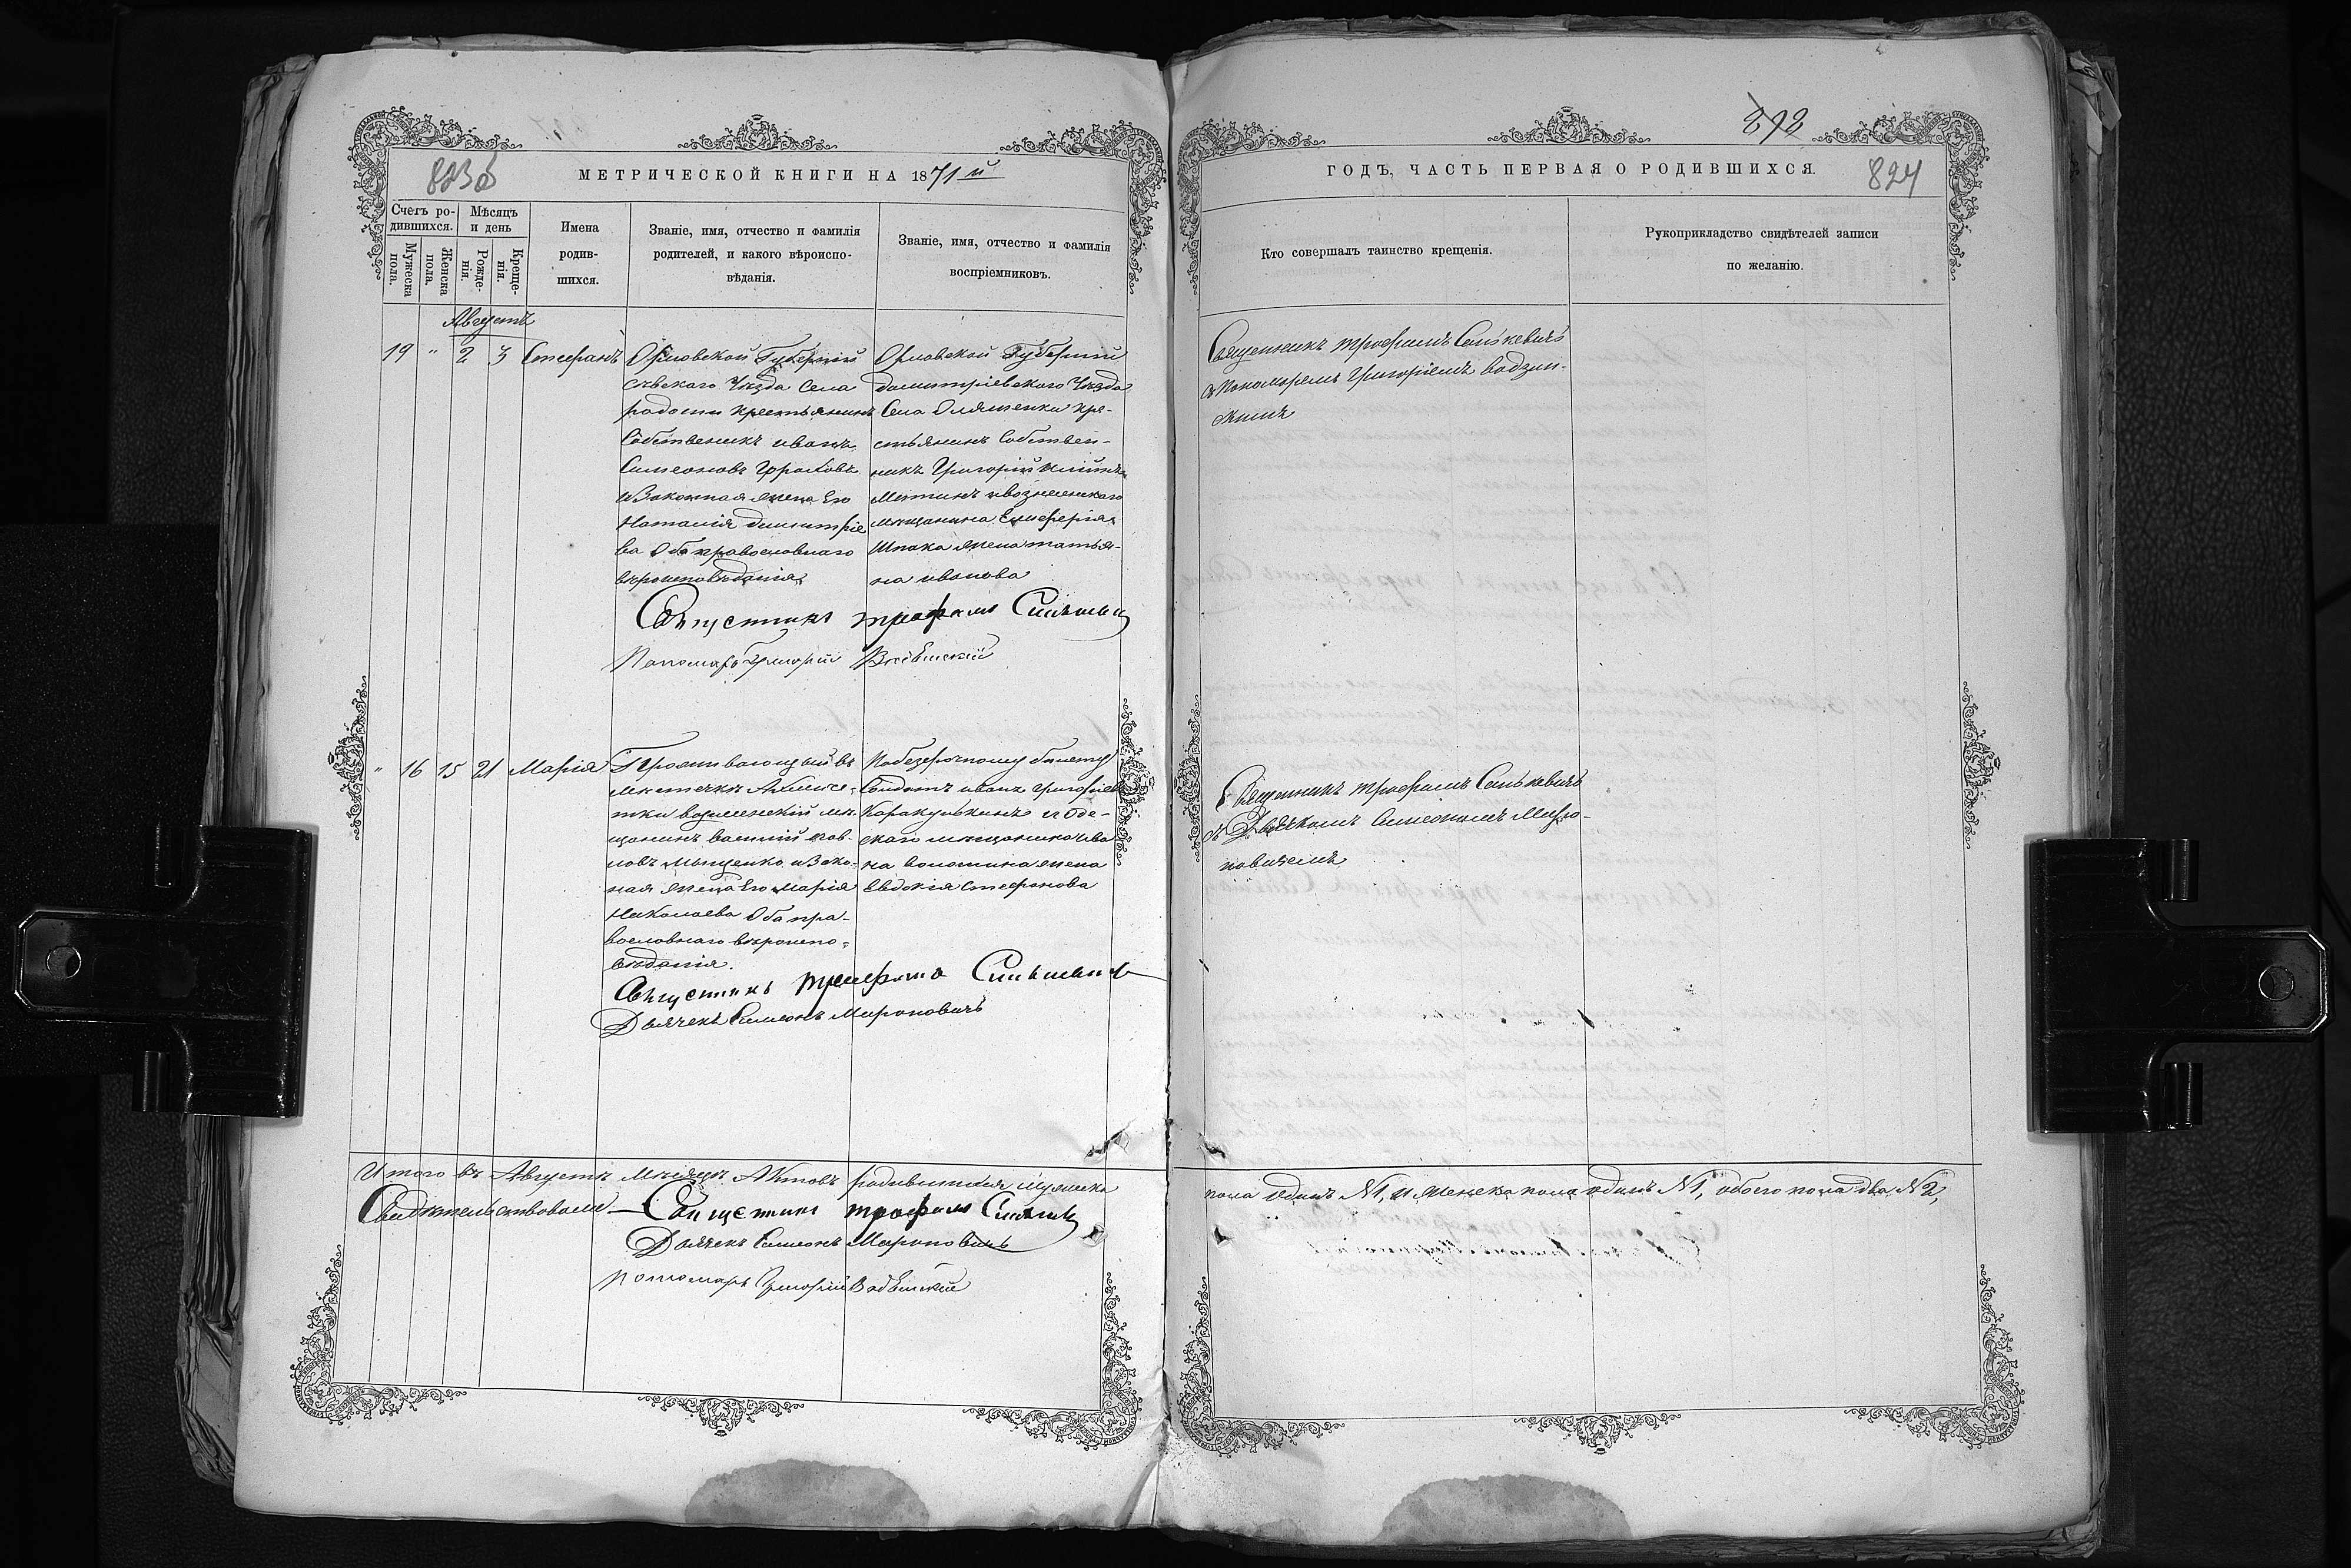 823об
МЕТРИЧЕСКОЙ КНИГИ НА 1871й
Счетъ ро-
дившихся.
Мужеска пола.
Женска пола.
Мѣсяцъ
и день
Рожде-
нія.
Креще-
нія.
Имена
родив-
шихся.
Званіе, имя, отчество и фамилія
родителей, и какого вѣроиспо-
вѣданія.
Званіе, имя, отчество и фамилія
воспріемниковъ.
Августъ
19 " 2 3 Стефанъ
Орловской Губерніи
сѣвскаго Уѣзда Села
крестьянинъ
Собственикъ иванъ
Симеоновъ
и Законная жена Его
Наталія димитріе
ва Оба православнаго
вѣроисповѣданія
Орловской Губерніи
димитріевскаго Уѣзда
Села кре-
стьянинъ Собствен-
никъ Григорій
и вознесенскаго
мѣщанина Елеферія
Шпака жена татья-
на иванова
Священникъ трофимъ Синькевичъ
Пономарь Григорій
" 16 15 21 Марія
Проживающый въ
мѣстечкѣ Ахмече-
тки вознесенскій мѣ-
щанинъ василій пав-
ловъ и Зако-
ная жена Его марія
Николаева Оба пра-
вославнаго вѣроиспо-
вѣданія.
По безсрочному билету
Солдатъ иванъ григорьевъ
Каракулькинъ и Оде-
скаго мѣщанина ива
на жена
Евдокія стефанова
Священникъ трофимъ Синькевичъ
Дьячекъ Симеонъ Мироновичъ
Итого въ Августѣ Мѣсяцѣ Актовъ родившихся мужеска
Свидѣтельствовали Священникъ трофимъ Синькевичъ
Дьячекъ Симеонъ Мироновичъ
пономарь Григорій
892
824
ГОДЪ, ЧАСТЬ ПЕРВАЯ О РОДИВШИХСЯ.
Кто совершалъ таинство крещенія.
Рукоприкладство свидѣтелей записи
по желанію.
Священникъ трофимъ Синькевичъ
съ пономаремъ Григоріемъ
Священникъ трофимъ Синькевичъ
съ Дьячкомъ Симеономъ Миро-
новичемъ
пола одинъ №1, и женска пола одинъ №1, обоего пола два, №2,